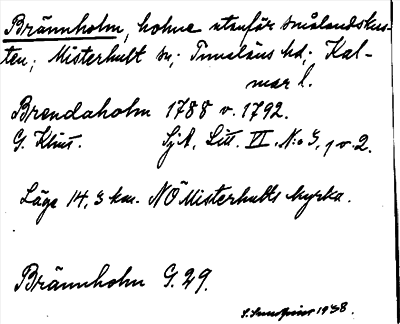 Brännholm, holme utanför smålandskus-
ten; Misterhult sn; Tunaläns hd; Kal-
mar l.
Brendaholm 1788 o. 1792.
G. Klint. SjA, Litt. VI, N:o 3, 1 o 2.
Läge 14,3 km. NÖ Misterhults kyrka.
Brännholm G. 29.
1938.